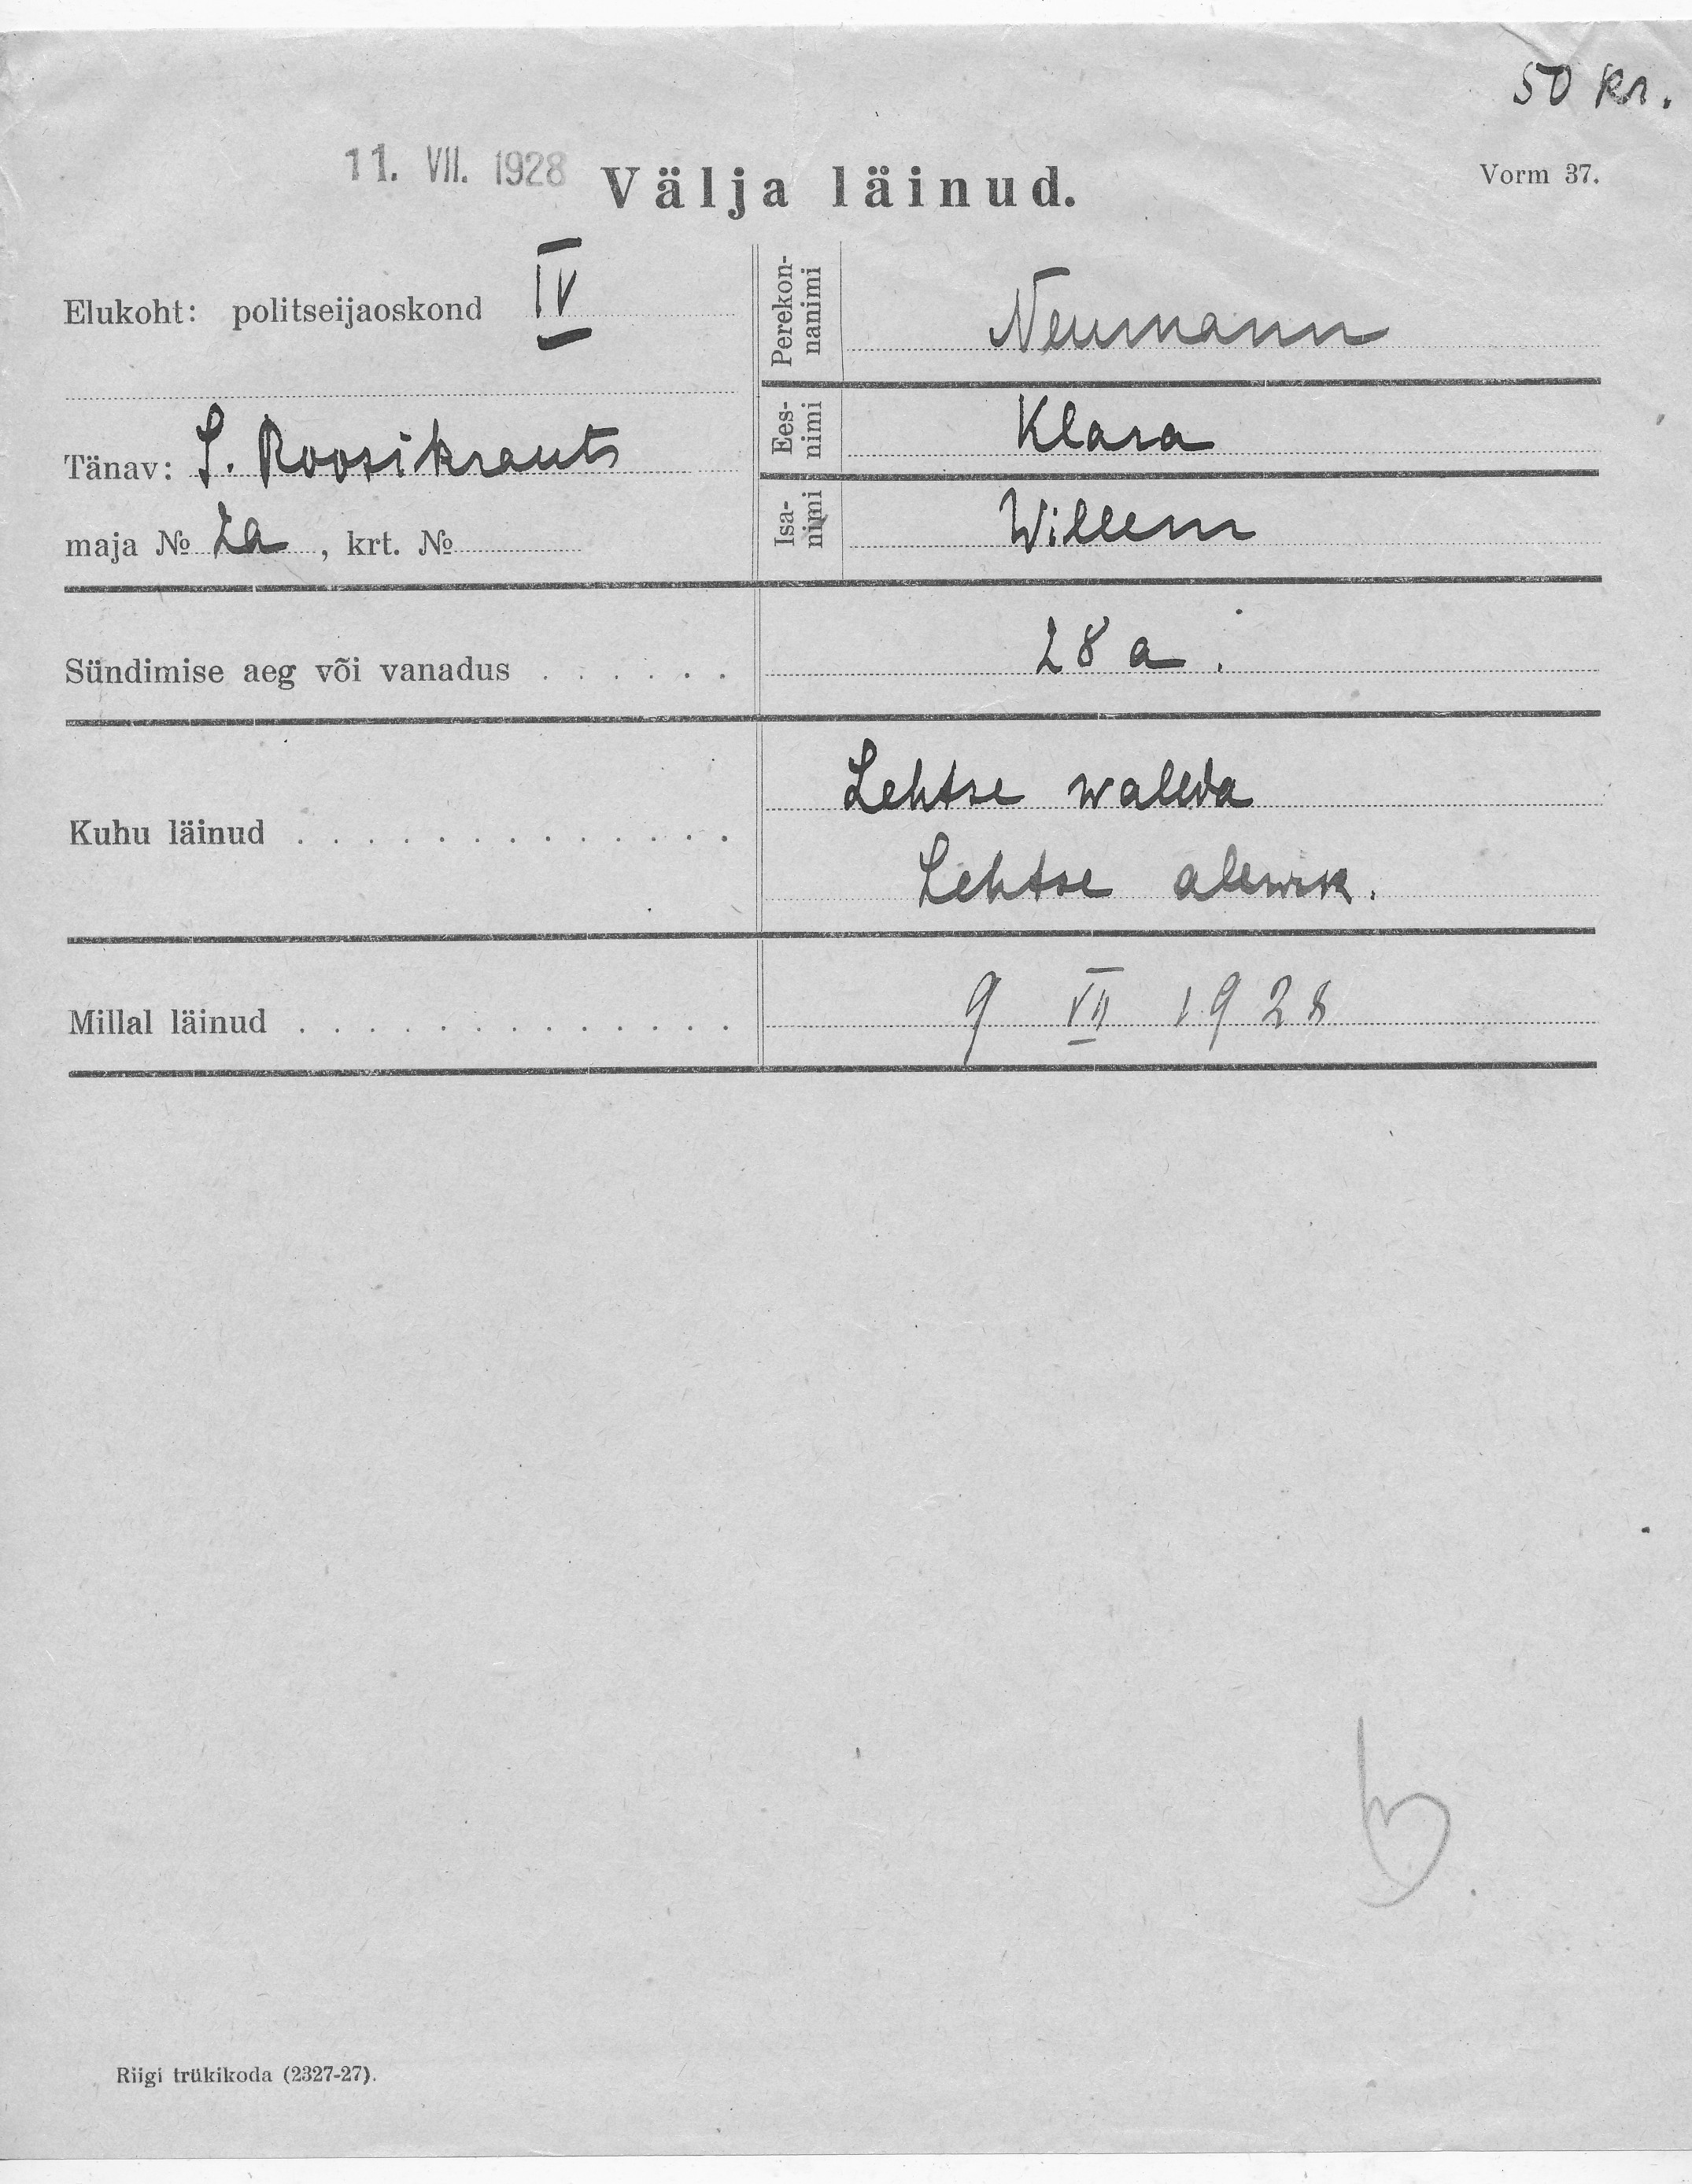 50 kr.
11. VII. 1928
Välja läinud.
Vorm 37.
Elukoht: politseijaoskond IV
Tänav: S. Roosikrants
maja № 2a, krt. №
Perekon-
nanimi
Neumann
Ees-
nimi
Klara
Isa-
nimi
Willem
Sündimise aeg või vanadus . . . . . . 28 a.
Kuhu läinud . . . . . . . . . . . . . Lehtse walda
Lehtse alewik.
Millal läinud . . . . . . . . . . . . . 9 VII 1928
Riigi trükikoda (2327-27).